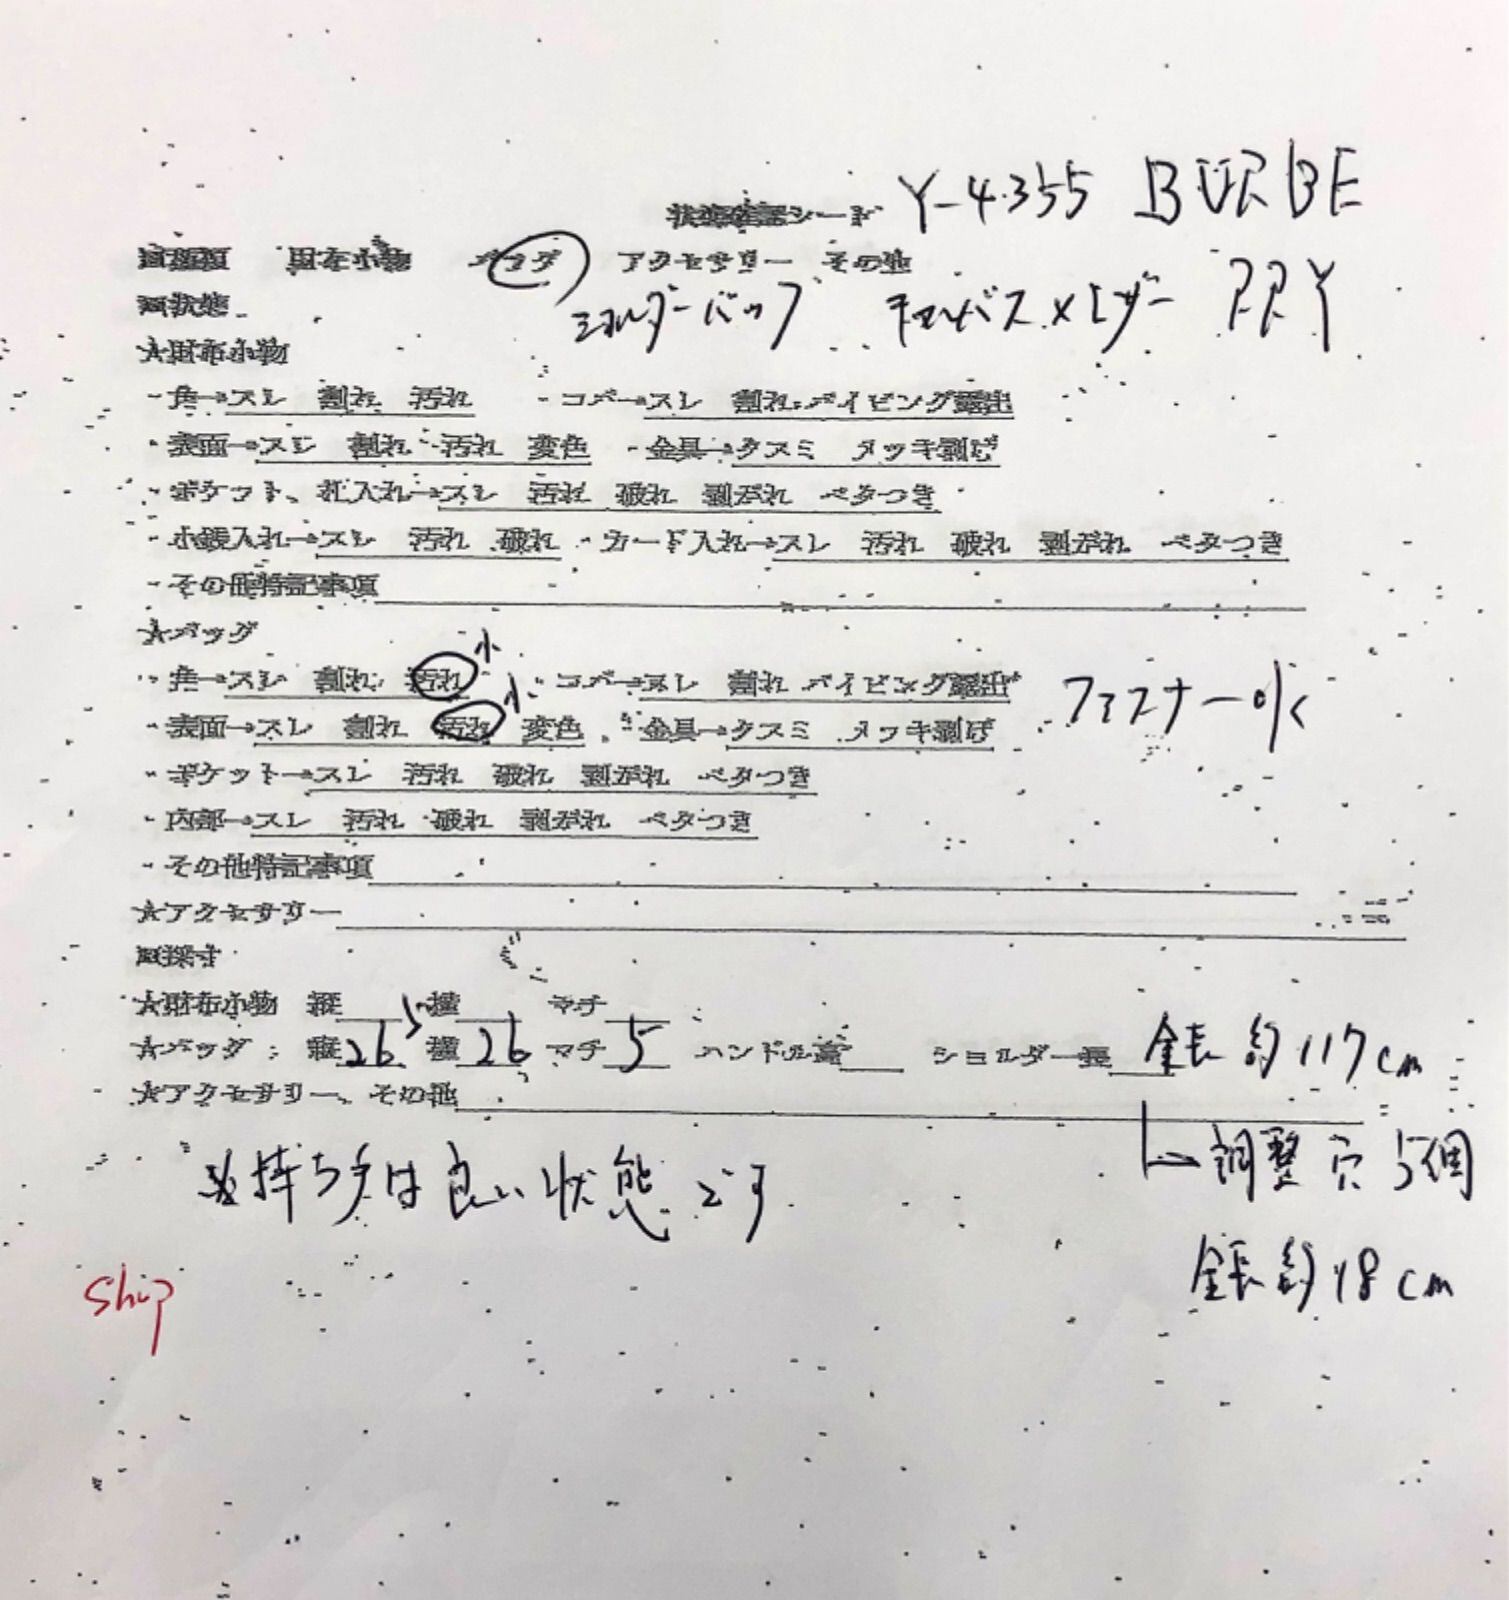 状態確認シート Y-4355 BURBE
■種類 財布小物 バッグ アクセサリー その他
■状態 ショルダーバッグ キャンバス×レザー RRY
★財布小物
・角→スレ 割れ 汚れ ・コバ→スレ 割れ パイピング露出
・表面→スレ 割れ 汚れ 変色 ・金具→クスミ メッキ剥げ
・ポケット、札入れ→スレ 汚れ 破れ 剥がれ ベタつき
・小銭入れ→スレ 汚れ 破れ ・カード入れ→スレ 汚れ 破れ 剥がれ ベタつき
・その他特記事項
★バッグ
・角→スレ 割れ 汚れ 小 ・コバ→スレ 割れ パイピング露出
・表面→スレ 割れ 汚れ 小 変色 ・金具→クスミ メッキ剥げ ファスナーOK
・ポケット→スレ 汚れ 破れ 剥がれ ベタつき
・内部→スレ 汚れ 破れ 剥がれ ベタつき
・その他特記事項
★アクセサリー
■採寸
★財布小物 縦 横 マチ
★バッグ 縦 26.5 横 26 マチ 5 ハンドル高 ショルダー長 全長約117cm
★アクセサリー、その他
→調整穴5個
※持ち手は良い状態です
全長約18cm
Ship